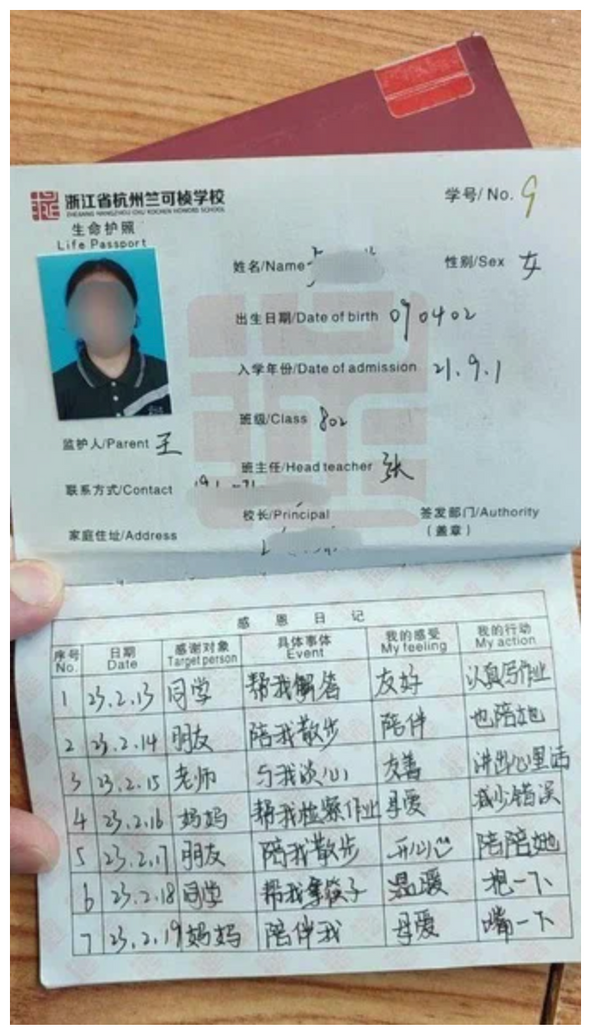 浙江省杭州竺可桢学校
ZHEJIANG HANGZHOU CHU KOCHEN HONORS SCHOOL
学号/ No. 9
生命护照
Life Passport
姓名/Name
性别/Sex 女
出生日期/Date of birth 090402
入学年份/Date of admission 21.9.1
班级/Class 802
监护人/Parent 王
班主任/Head teacher 张
联系方式/Contact
校长/Principal
签发部门/Authority
(盖章)
家庭住址/Address
感恩日记
序号 日期 感谢对象 具体事体 我的感受 我的行动
No. Date Target person Event My feeling My action
1 23.2.13 同学 帮我解答 友好 认真写作业
2 23.2.14 朋友 陪我散步 陪伴 也陪她
3 23.2.15 老师 与我谈心 友善 讲出心里话
4 23.2.16 妈妈 帮我检察作业 母爱 减少错误
5 23.2.17 朋友 陪我散步 开心 陪陪她
6 23.2.18 同学 帮我拿筷子 温暖 抱一下
7 23.2.19 妈妈 陪伴我 母爱 嘴一下